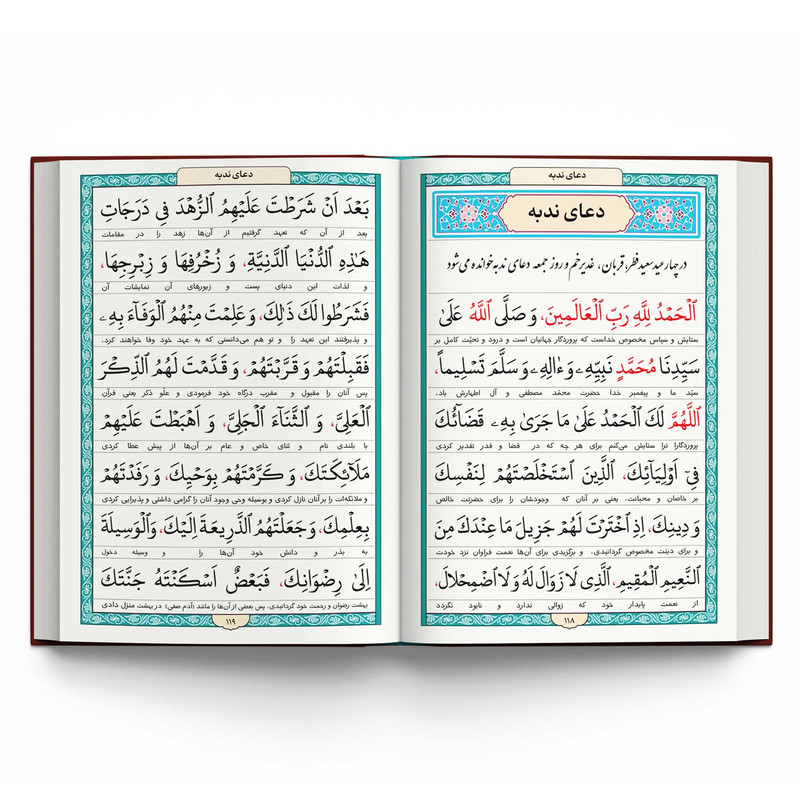 دعای ندبه
دعای ندبه
در چهار عید سعید فطر، قربان، غدیرخم و روز جمعه دعای ندبه خوانده می‌شود
اَلْحَمْدُ لِلّٰهِ رَبِّ الْعَالَمِينَ، وَ صَلَّى اللّٰهُ عَلىٰ
ستایش و سپاس مخصوص خداست که پروردگار جهانیان است و درود و تحیّت کامل بر
سَيِّدِنَا مُحَمَّدٍ نَبِيِّهِ وَ اٰلِهِ وَ سَلَّمَ تَسْلِيماً،
سیّد ما و پیغمبر خدا حضرت محمّد مصطفی و آل اطهارش باد.
اَللّٰهُمَّ لَكَ الْحَمْدُ عَلىٰ مَا جَرىٰ بِهِ قَضَائُكَ
پروردگارا ترا ستایش می‌کنم برای هر چه که در قضا و قدر تقدیر کردی
فِي اَوْلِيَائِكَ، اَلَّذِينَ اسْتَخْلَصْتَهُمْ لِنَفْسِكَ
بر خاصان و محبانت، یعنی بر آنان که وجودشان را برای حضرتت خالص
وَ دِينِكَ، اِذِ اخْتَرْتَ لَهُمْ جَزِيلَ مَا عِنْدَكَ مِنَ
و برای دینت مخصوص گردانیدی، و برگزیدی برای آن‌ها نعمت فراوان نزد خودت
النَّعِيمِ الْمُقِيمِ، اَلَّذِي لَا زَوَالَ لَهُ وَ لَا اضْمِحْلَالَ،
از نعمت پایدار خود که زوالی ندارد و نابود نگردد
۱۱۸
دعای ندبه
بَعْدَ اَنْ شَرَطْتَ عَلَيْهِمُ الزُّهْدَ فِي دَرَجَاتِ
بعد از آن که تعهد گرفتیم از آن‌ها زهد را در مقامات
هٰذِهِ الدُّنْيَا الدَّنِيَّةِ، وَ زُخْرُفِهَا وَ زِبْرِجِهَا،
و لذات این دنیای پست و زیورهای آن نمایشات آن
فَشَرَطُوا لَكَ ذٰلِكَ، وَ عَلِمْتَ مِنْهُمُ الْوَفَاءَ بِهِ
و پذیرفتند این تعهد را و تو هم می‌دانستی که به عهد خود وفا خواهند کرد،
فَقَبِلْتَهُمْ وَ قَرَّبْتَهُمْ، وَ قَدَّمْتَ لَهُمُ الذِّكْرَ
پس آنان را مقبول و مقرب درگاه خود فرمودی و علوّ ذکر یعنی قرآن
الْعَلِيَّ، وَ الثَّنَاءَ الْجَلِيَّ، وَ اَهْبَطْتَ عَلَيْهِمْ
با بلندی نام و ثنای خاص و عام بر آن‌ها از پیش عطا کردی
مَلَائِكَتَكَ، وَ كَرَّمْتَهُمْ بِوَحْيِكَ، وَ رَفَدْتَهُمْ
و ملائکه‌ات را بر آنان نازل کردی و بوسیله وحی وجود آنان را گرامی داشتی و پذیرایی کردی
بِعِلْمِكَ، وَ جَعَلْتَهُمُ الذَّرِيعَةَ اِلَيْكَ، وَ الْوَسِيلَةَ
به بذر و دانش خود آن‌ها را و وسیله دخول
اِلىٰ رِضْوَانِكَ، فَبَعْضٌ اَسْكَنْتَهُ جَنَّتَكَ
بهشت رضوان و رحمت خود گردانیدی، پس بعضی از آن‌ها را مانند (آدم صفی) در بهشت منزل دادی
۱۱۹